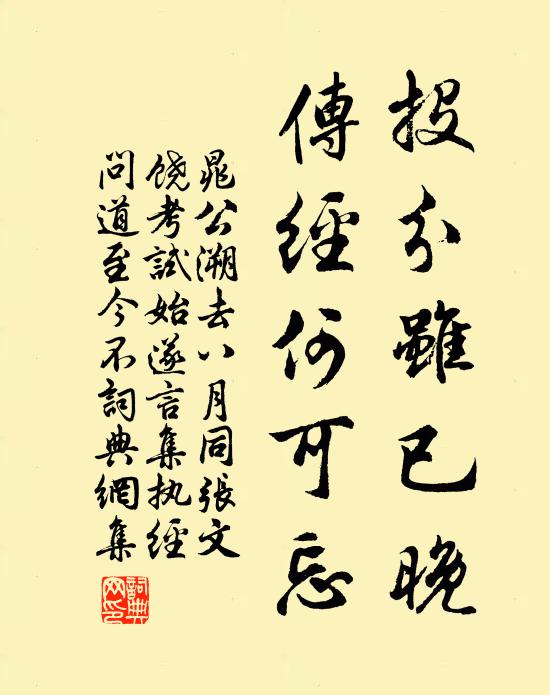 投分雖已晚
傳經何可忘
晁公溯去八月同張文
饒考試始遂言集执經
問道至今不詞典網集
詞典網印